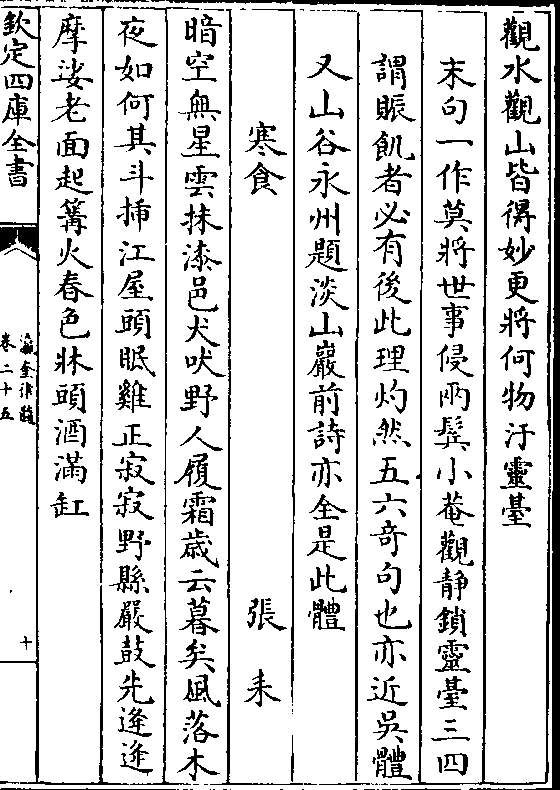 觀水觀山皆得妙更將何物汙靈臺
末句一作莫將世事侵兩鬢小菴觀靜鎖靈臺三四
謂賑飢者必有後此理灼然五六奇句也亦近吳體
又山谷永州題淡山巖前詩亦全是此體
寒食 張耒
暗空無星雲抹漆邑犬吠野人履霜歲云暮矣風落木
夜如何其斗揷江屋頭眠雞正寂寂野縣嚴鼓先逄逄
摩娑老面起篝火春色牀頭酒滿缸
欽定四庫全書
瀛奎律髓
卷二十五
十